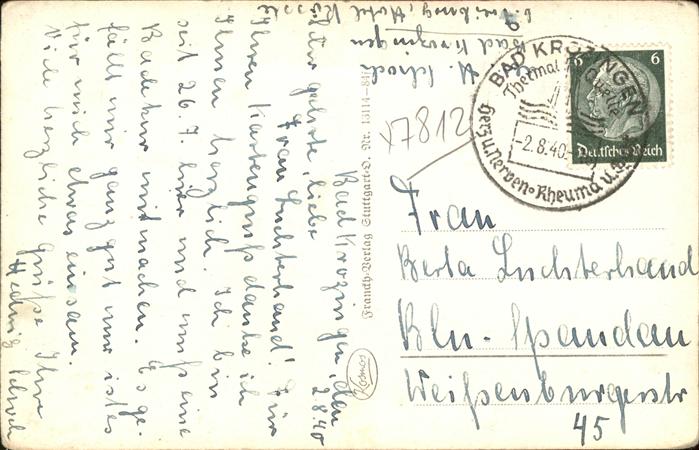 Bad Krozingen, den
2.8.40
Sehr geehrte, liebe
Frau Luchterhand! Für
Ihren Kartengruß danke ich
Ihnen herzlich. Ich bin
seit 26.7. hier und muß eine
Badekur mitmachen. Es ge-
fällt mir ganz gut nur ist es
für mich etwas einsam.
Viele herzliche Grüße Ihre
Hedwig Schrodt
H. Schrodt
Bad Krozingen
b. Freiburg, Hotel
Franckh-Verlag Stuttgart-O. Nr.
Kosmos
x7812
BAD KROZINGEN
Thermal Quelle
-2.8.40.
Herz u. Nerven Rheuma u.
6 6
Deutsches Reich
Frau
Berta Luchterhand
Bln.-Spandau
Weißenburgerstr
45